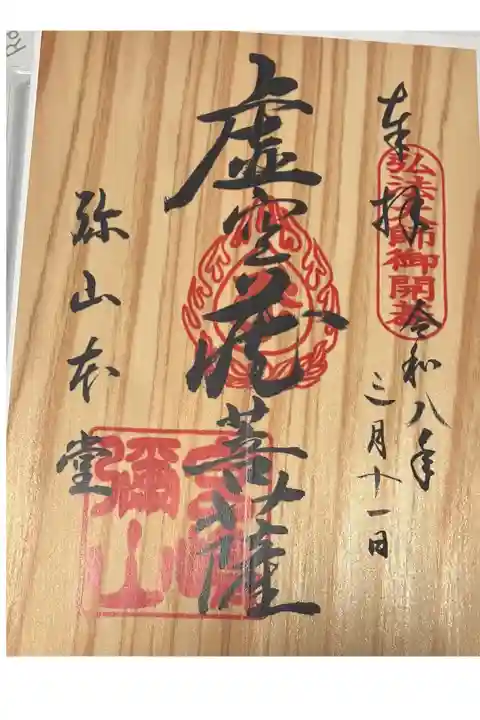 奉拝
弘法大師御開基
令和八年
三月十一日
虚空蔵菩薩
弥山本堂
彌山